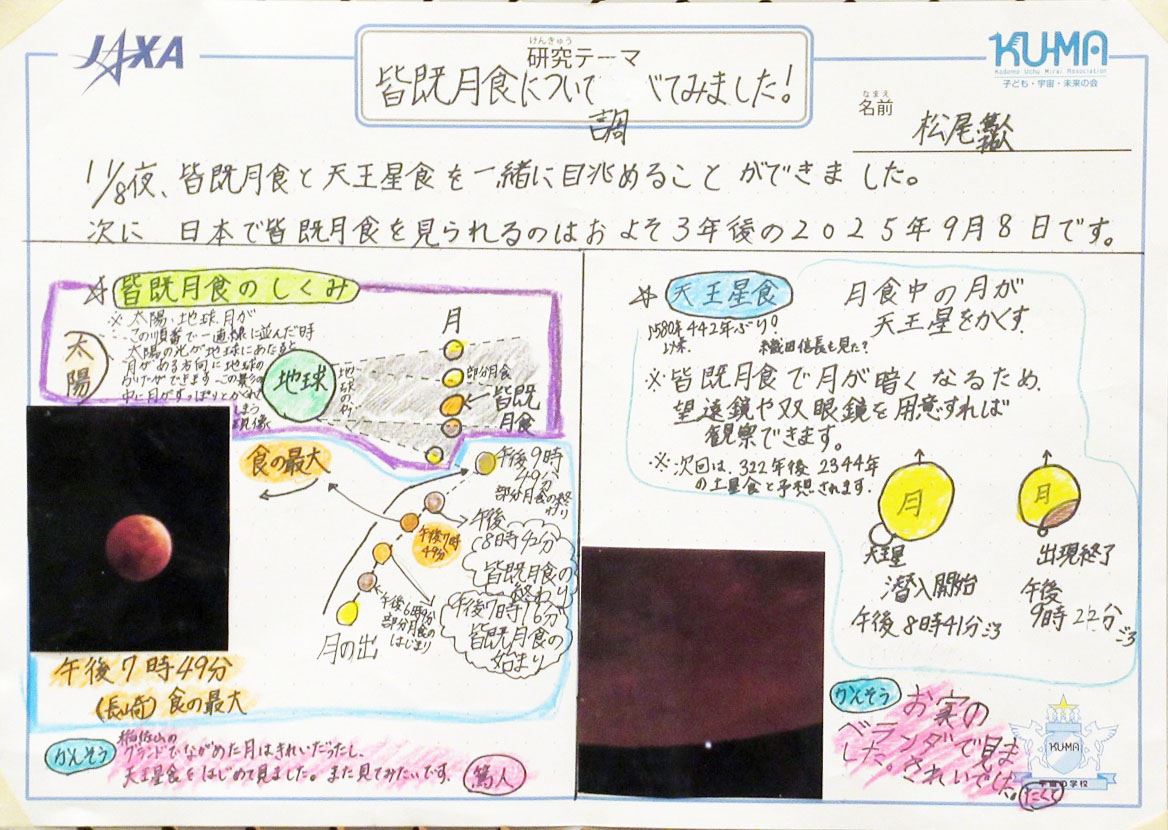 JAXA
けんきゅう
研究テーマ
皆既月食について べてみました!
調
KU-MA
Kodomo Uchu Mirai Association
子ども・宇宙・未来の会
なまえ
名前
松尾
11/8夜、皆既月食と天王星食を一緒に眺めることができました。
次に 日本で皆既月食を見られるのはおよそ3年後の2025年9月8日です。
皆既月食のしくみ
※ 太陽、地球、月が
この順番で一直線に並んだ時
太陽の光が地球にあたると
月がある方向に地球の
かげができます この影の
中に月がすっぽりとかくれ
しまう
現象
太陽
地球
地球のかげ
月
部分月食
皆既
月食
食の最大
午後9時
49分
部分月食の終わり
午後
8時42分
皆既月食の
終わり
午後7時
49分
午後7時16分
皆既月食の
始まり
部分月食の
はじまり
月の出
午後7時49分
(長崎) 食の最大
かんそう
稲佐山の
グランドでながめた月はきれいだったし、
天王星食をはじめて見ました。また見てみたいです。
篤人
天王星食
月食中の月が
天王星をかくす
1580年 442年ぶり!
以来、
織田信長も見た?
※皆既月食で月が暗くなるため、
望遠鏡や双眼鏡を用意すれば
観察できます。
※次回は、322年後 2344年
の土星食と予想されます。
月
天王星
潜入開始
午後8時41分ごろ
月
出現終了
午後
9時22分
ごろ
かんそう
お家の
ベランダで見ま
した。きれいでした。
たくと
KU-MA
宇宙の学校